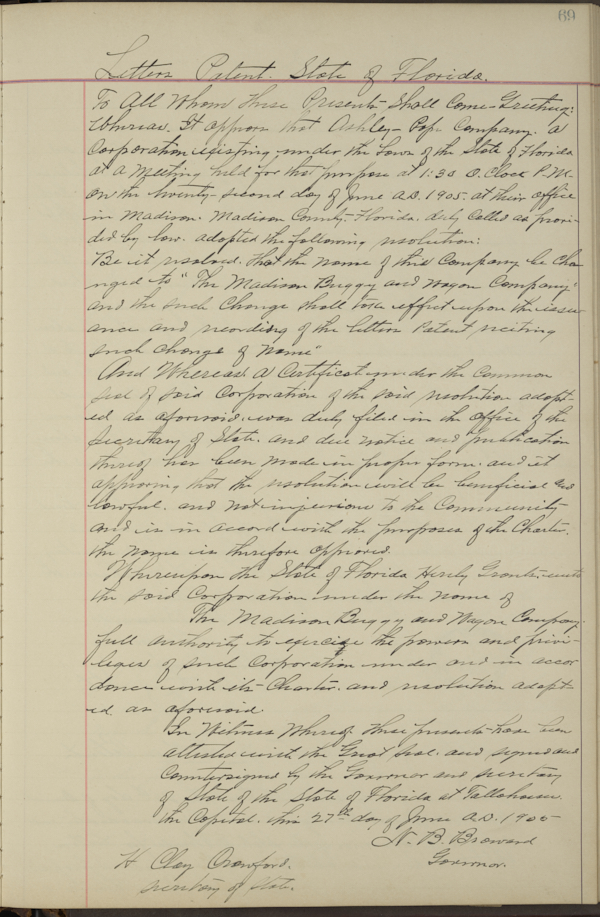 89
Letters Patent. State of Florida.
To All Whom these Presents Shall Come - Greeting:
Whereas. It appears that Ashley-Pope Company. a
Corporation existing under the Laws of the State of Florida
at a Meeting held for that purpose at 1:30 O.Clock P.M.
on the twenty-second day of June A.D. 1905. at their office
in Madison. Madison County-Florida. duly Called as provi-
ded by law. adopted the following resolution:
Be it resolved. that the name of this Company be Cha
nged to "The Madison Buggy and Wagon Company"
and the such Change shall take effect upon the issu-
ance and recording of the letters Patent reciting
such change of Name"
And Whereas. a Certificate under the Common
seal of said Corporation of the said resolution adopt-
ed as aforesaid. was duly filed in the Office of the
Secretary of State. and due notice and publication
thereof has been made in proper form. and it
appearing that the resolution will be beneficial and
lawful. and not injurious to the Community
and is in accord with the purposes of the Charter.
the name is therefore approved.
Whereupon the State of Florida Hereby Grants unto
the said Corporation under the name of
The Madison Buggy and Wagon Company.
full authority to exercise the powers and privi-
leges of such Corporation under and in accor
dance with its Charter. and resolution adopt-
ed as aforesaid
In Witness Whereof these presents have been
attested with the Great seal. and signed and
Countersigned by the Governor and secretary
of State of the State of Florida at Tallahassee
the Capital. this 27th day of June A.D. 1905
N. B. Broward
Governor.
H Clay Crawford.
secretary of State.